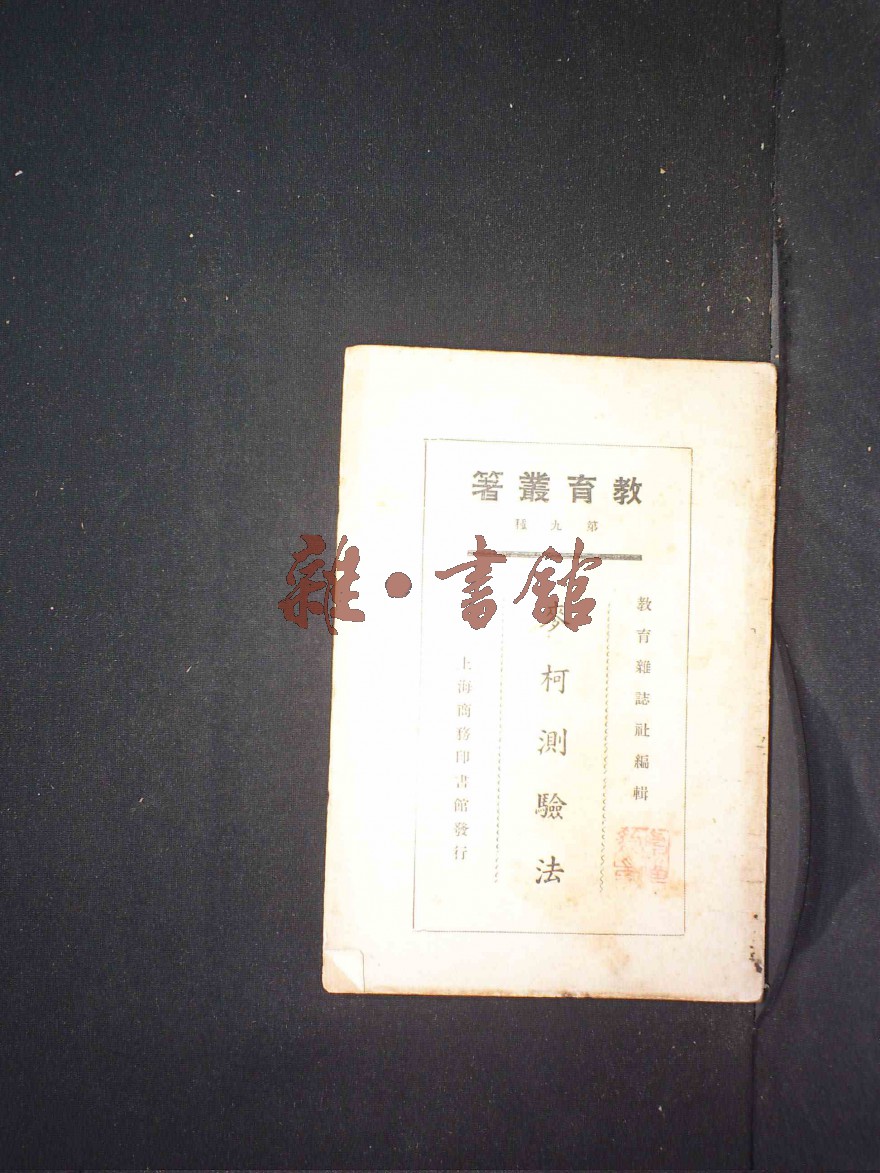 教育叢著
第九種
教育雜誌社編輯
麥柯測驗法
上海商務印書館發行
雜·書館